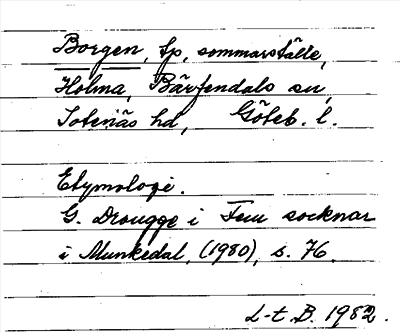 Borgen, lp, sommarställe,
Holma, Bärfendals sn,
Sotenäs hd, Göteb. l.
Etymologi.
G. Drougge i Fem socknar
i Munkedal, (1980), s. 76.
L-t. B. 1982.